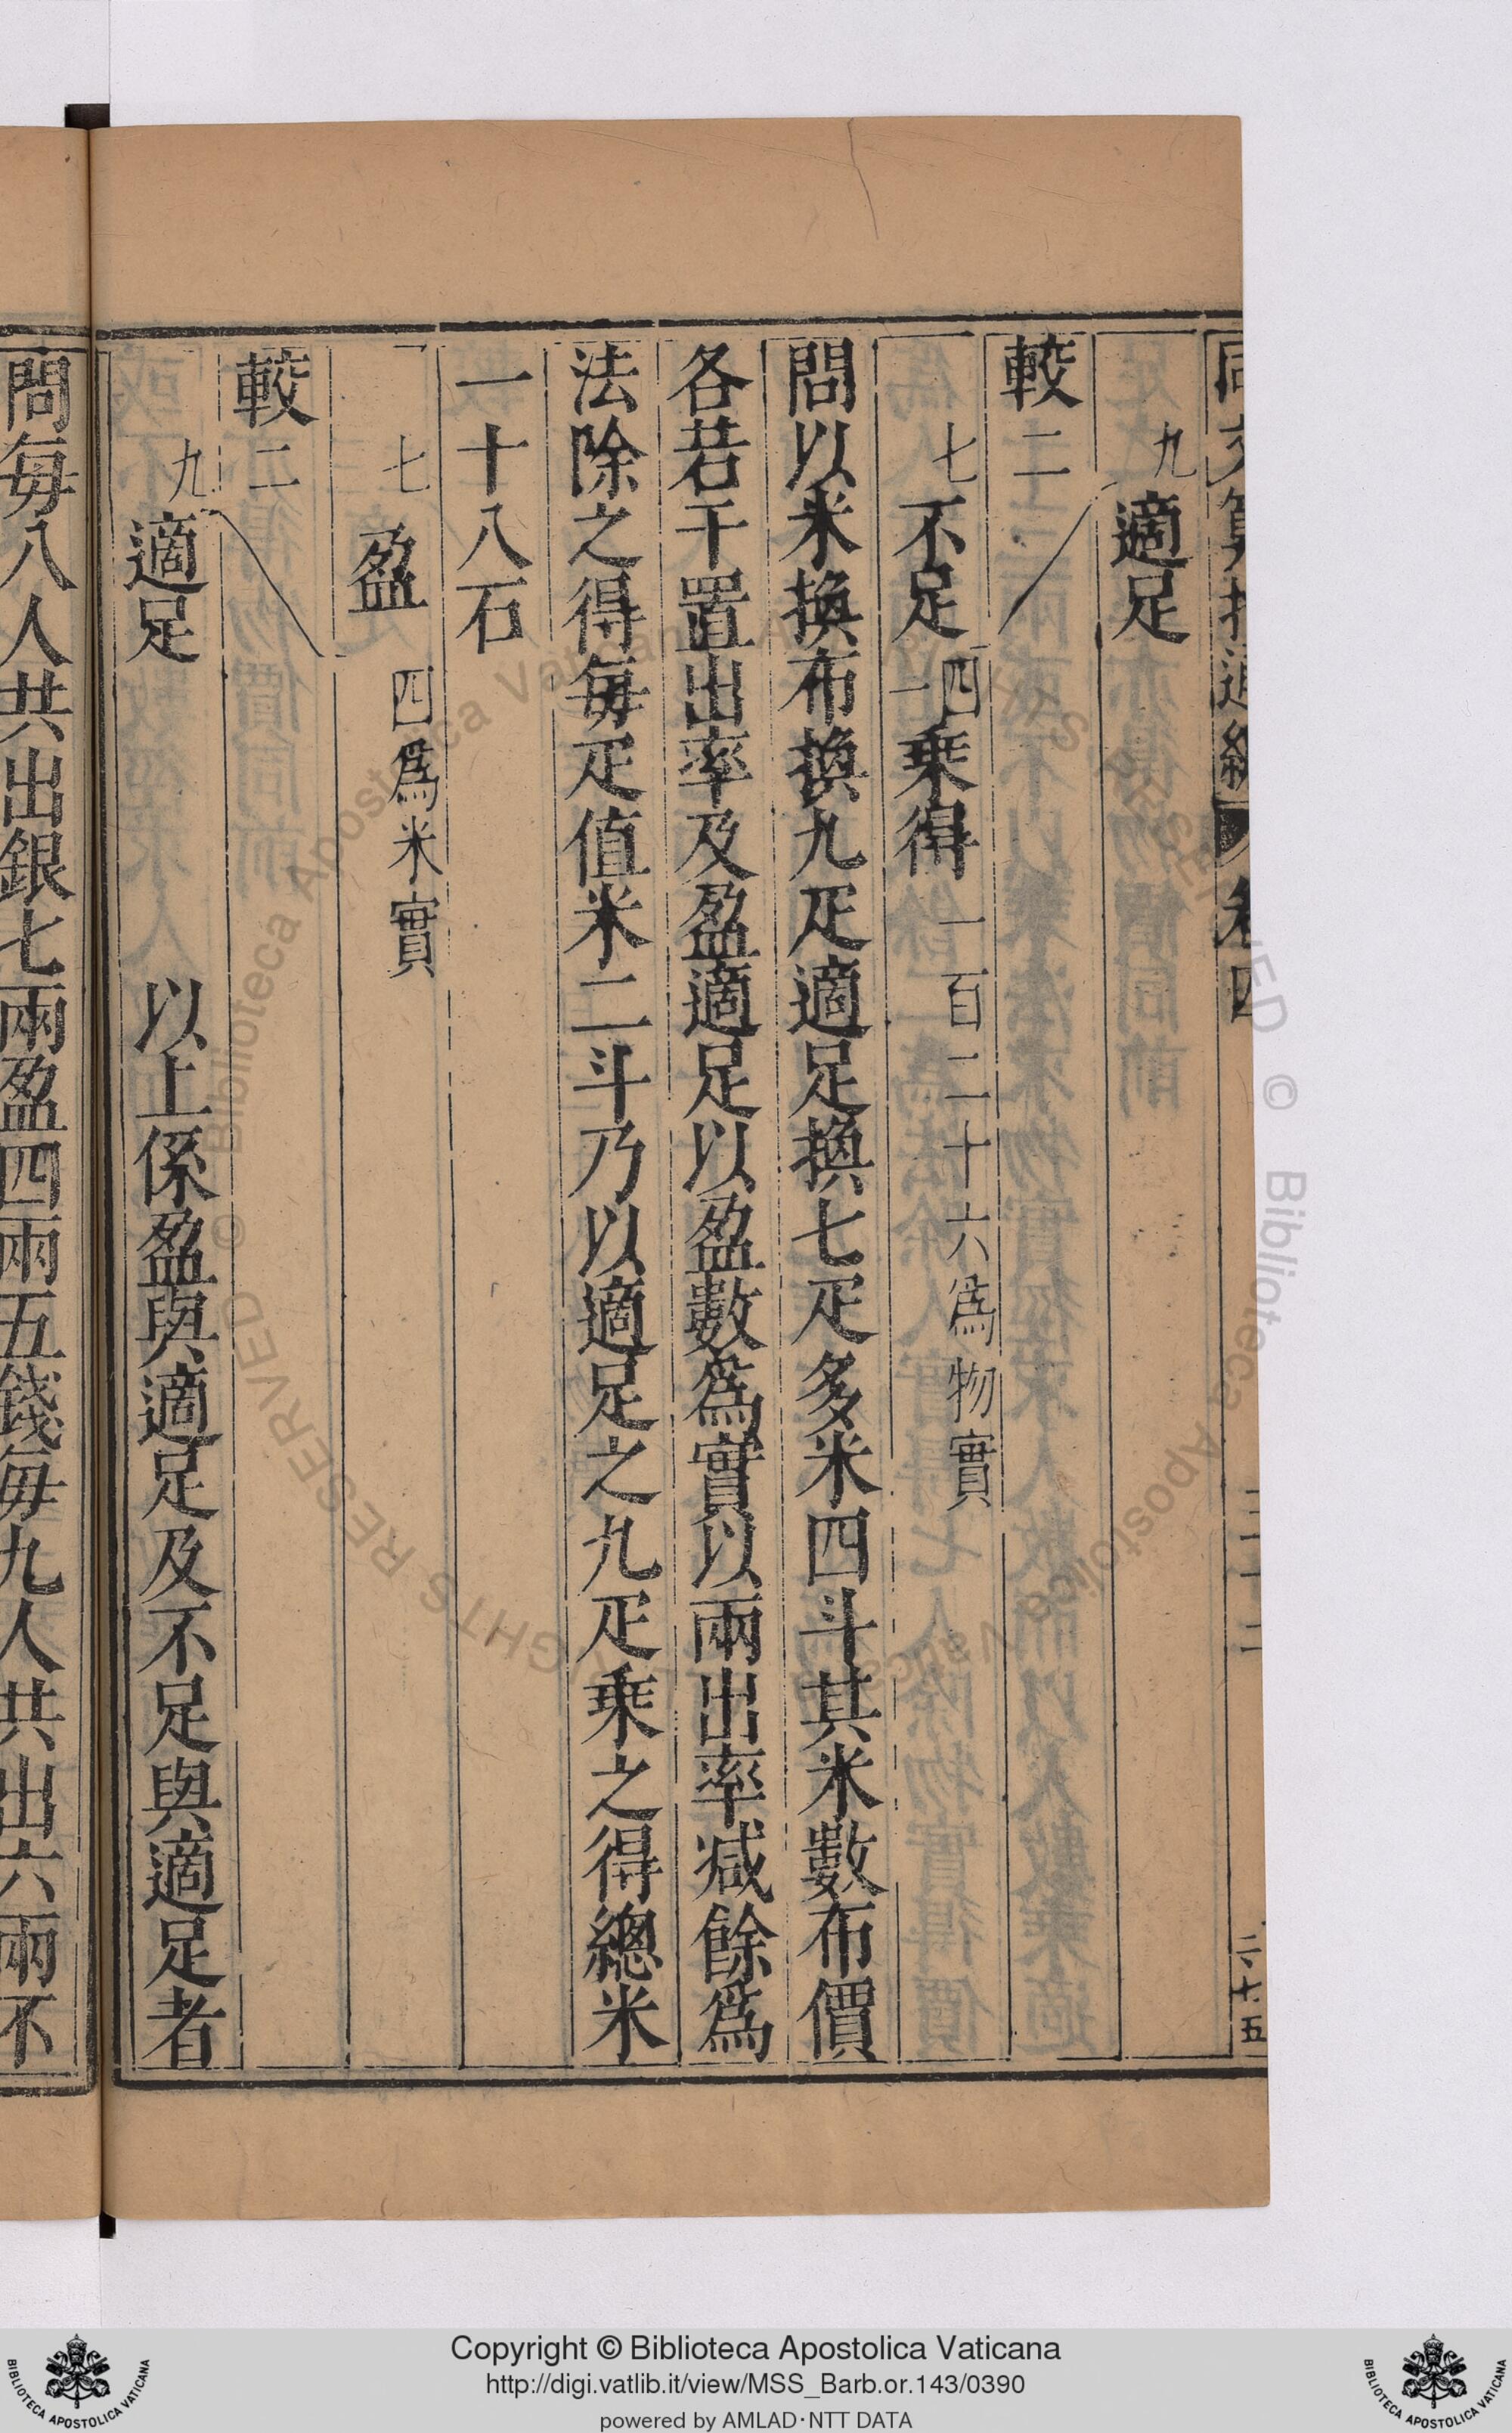 九適足
較二
七不足 一四乗得 一百二十六爲物實
問以米換布換九疋適足換七疋多米四斗其米數布價
各若干置出率及盈適足以盈數爲實以兩出率减餘爲
法除之得每疋值米二斗乃以適足之九疋乗之得總米
一十八石
七盈 四爲米實
較二
九適足 以上係盈與適足及不足與適足者
問每八人共出銀七兩盈四兩五錢每九人共出六兩不
卷四
二十五
Copyright © Biblioteca Apostolica Vaticana
http://digi.vatlib.it/view/MSS_Barb.or.143/0390
powered by AMLAD·NTT DATA
BIBLIOTECA APOSTOLICA VATICANA
BIBLIOTECA APOSTOLICA VATICANA